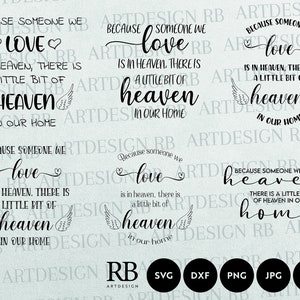 BECAUSE SOMEONE WE
LOVE
HEAVEN, THERE IS
LITTLE BIT OF
HEAVEN
IN OUR HOME
BECAUSE SOMEONE WE
love
IS IN HEAVEN, THERE IS
A LITTLE BIT OF
heaven
IN OUR HOME
BECAUSE SOMEONE WE
love
IS IN HEAVEN, THERE IS
A LITTLE BIT OF
heaven
IN OUR HOME
BECAUSE SOMEONE WE
love
HEAVEN, THERE IS
LITTLE BIT OF
heaven
IN OUR HOME
Because someone we
love
is in heaven, there is
a little bit of
heaven
in our home
BECAUSE SOMEONE WE
heave
THERE IS A LITTLE
OF HEAVEN IN OUR
hom
RB
ARTDESIGN
SVG
DXF
PNG
JPG